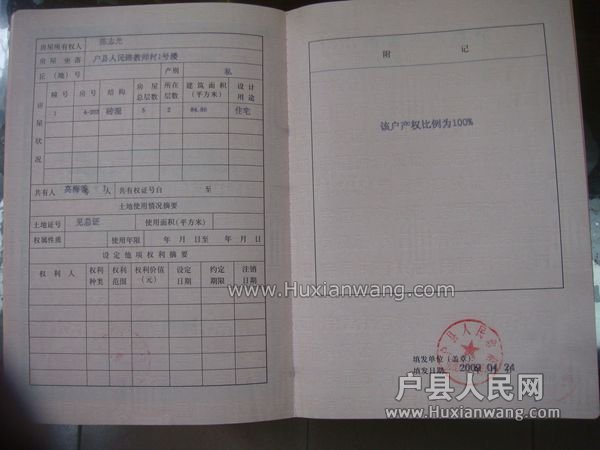 房屋所有权人 陈志光
房屋坐落 户县人民路教师村1号楼
丘（地）号 产别 私
房屋状况
幢号 房号 结构 房屋总层数 所在层数 建筑面积（平方米） 设计用途
1 4-202 砖混 5 2 84.86 住宅
共有人 高梅 1人 共有权证号自 至
土地使用情况摘要
土地证号 见总证 使用面积（平方米）
权属性质 使用年限 年 月 日至 年 月 日
设定他项权利摘要
权利人 权利种类 权利范围 权利价值（元） 设定日期 约定期限 注销日期
附 记
该户产权比例为100%
户县人民
填发单位（盖章）
填发日期 2009 04 24
www.Huxianwang.com
户县人民网
www.Huxianwang.com